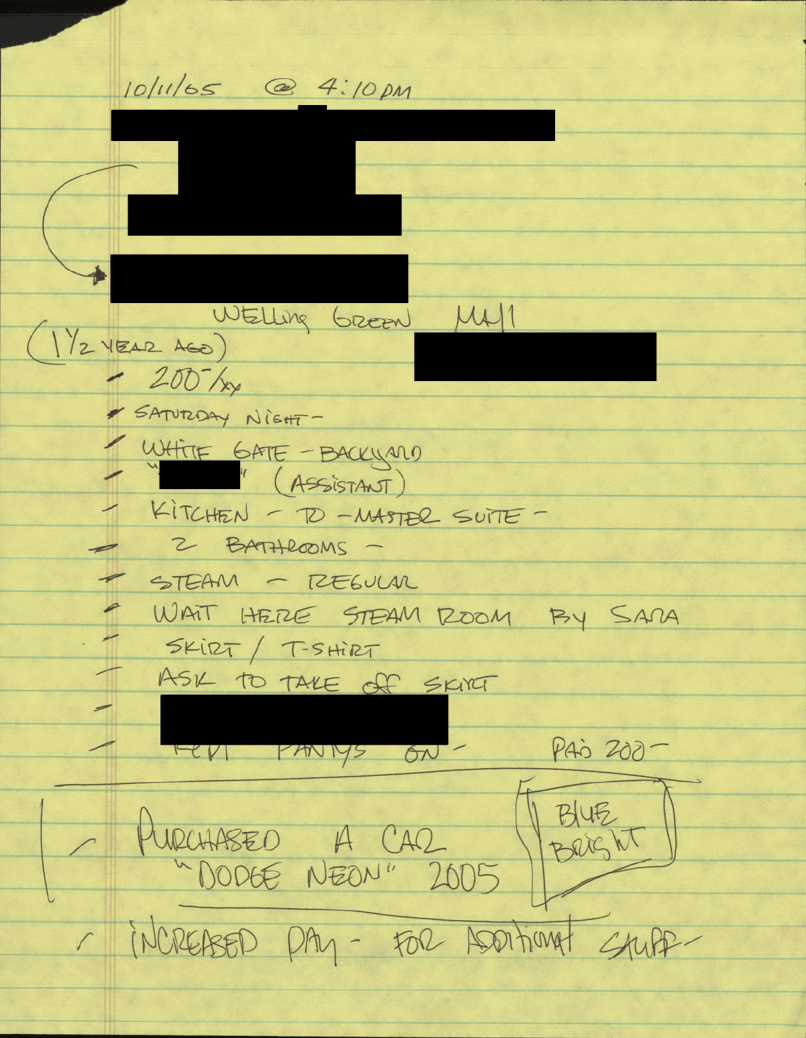 10/11/05 @ 4:10 PM
WELLing GREEN MAll
(1 1/2 YEAR AGO)
200-/xx
SATURDAY NIGHT -
WHITE GATE - BACKYARD
" " (ASSISTANT)
KITCHEN - TO - MASTER SUITE -
2 BATHROOMS -
STEAM - REGULAR
WAIT HERE STEAM ROOM By SARA
SKIRT / T-SHIRT
ASK TO TAKE off SKIRT
KEPT PANTYS ON - PAID 200-
PURCHASED A CAR
"DODGE NEON" 2005
BLUE
BRIGHT
INCREASED PAY - FOR ADDITIONAL STUFF -